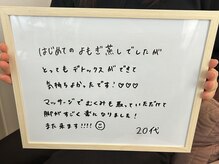 はじめてのよもぎ蒸しでしたが
とってもデトックスができて
気持ちよかったです！♡♡♡
マッサージでむくみも取っていただけて
脚がすごく楽になりました！
また来ます！！！！
20代